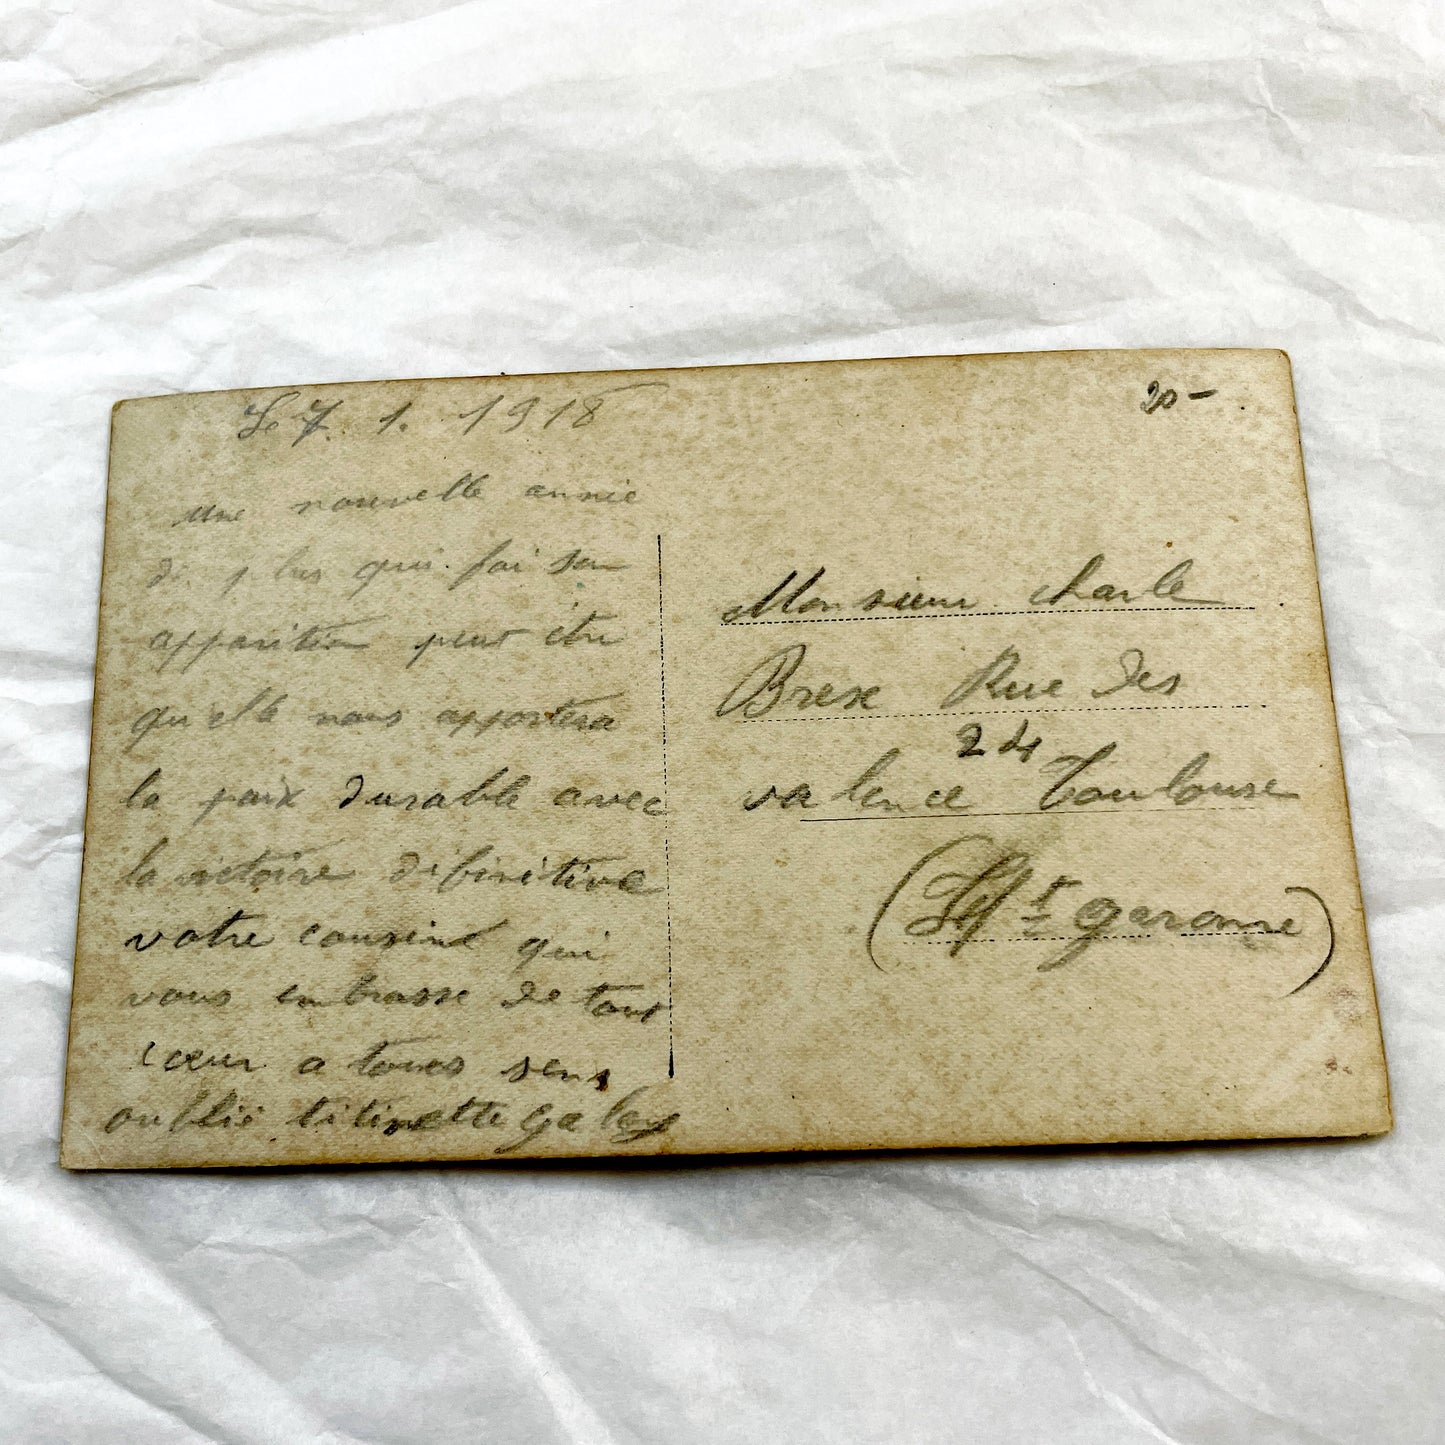 Le 7. 1. 1918
une nouvelle année
de plus qui fai son
apparition peut être
qu'elle nous apportera
la paix durable avec
la victoire difinitive
votre cousine qui
vous embrasse de tout
cœur a toues sens
oublié titinette
20-
Monsieur charle
Brese Rue des
24
valence Toulouse
( garonne)